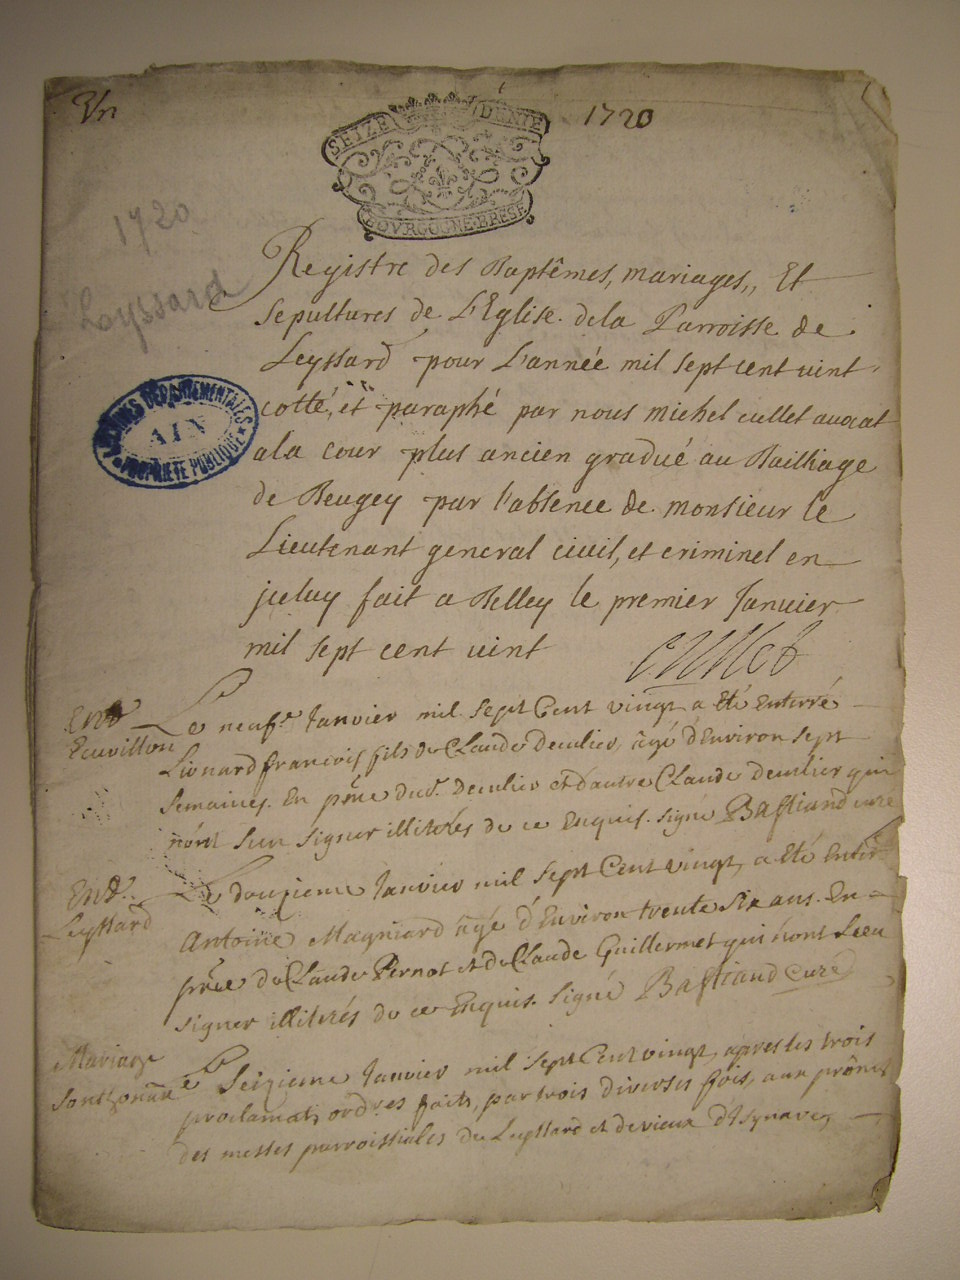 Vn
1720
SEIZE DENIE
BOVRGOGNE·BRESE
1720
Leyssard
Registre des Baptêmes, mariages,, Et
sepultures de L'Eglise dela Parroisse de
Leyssard pour L'année mil sept cent vint
cotté, et paraphé par nous michel cullet avocat
ala cour plus ancien gradué au Bailliage
de Beugey par l'absence de monsieur le
Lieutenant general civil, et criminel en
jceluy fait a Belley le premier Janvier
mil sept cent vint
Cullet
ARCHIVES DEPARTEMENTALES
AIN
PROPRIETE PUBLIQUE
Ent
Ecuvillon
Le neufe Janvier mil sept Cent vingt a Eté Enterré
Lionard francois fils de Claude Deculier, âgé d'Environ sept
semaines. En pñce dud. Deculier et d'autre Claude Deculier qui
n'ont sceu signer illiterés de ce Enquis. signé Bastiand curé
Ent
Leyssard
Le douzieme Janvier mil sept Cent vingt, a Eté Enterré
Antoine Magniard âgé d'Environ trente six ans. En
pñce de Claude Pernot et de Claude Guillermet qui n'ont sceu
signer illiterés de ce Enquis. signé Bastiand Curé
Mariage
Le Seizieme Janvier mil sept Cent vingt, apres les trois
proclamats ordres faits, par trois diverses fois, aux prônes
des messes parroissiales de Leyssard et de vieux d'Isnave,